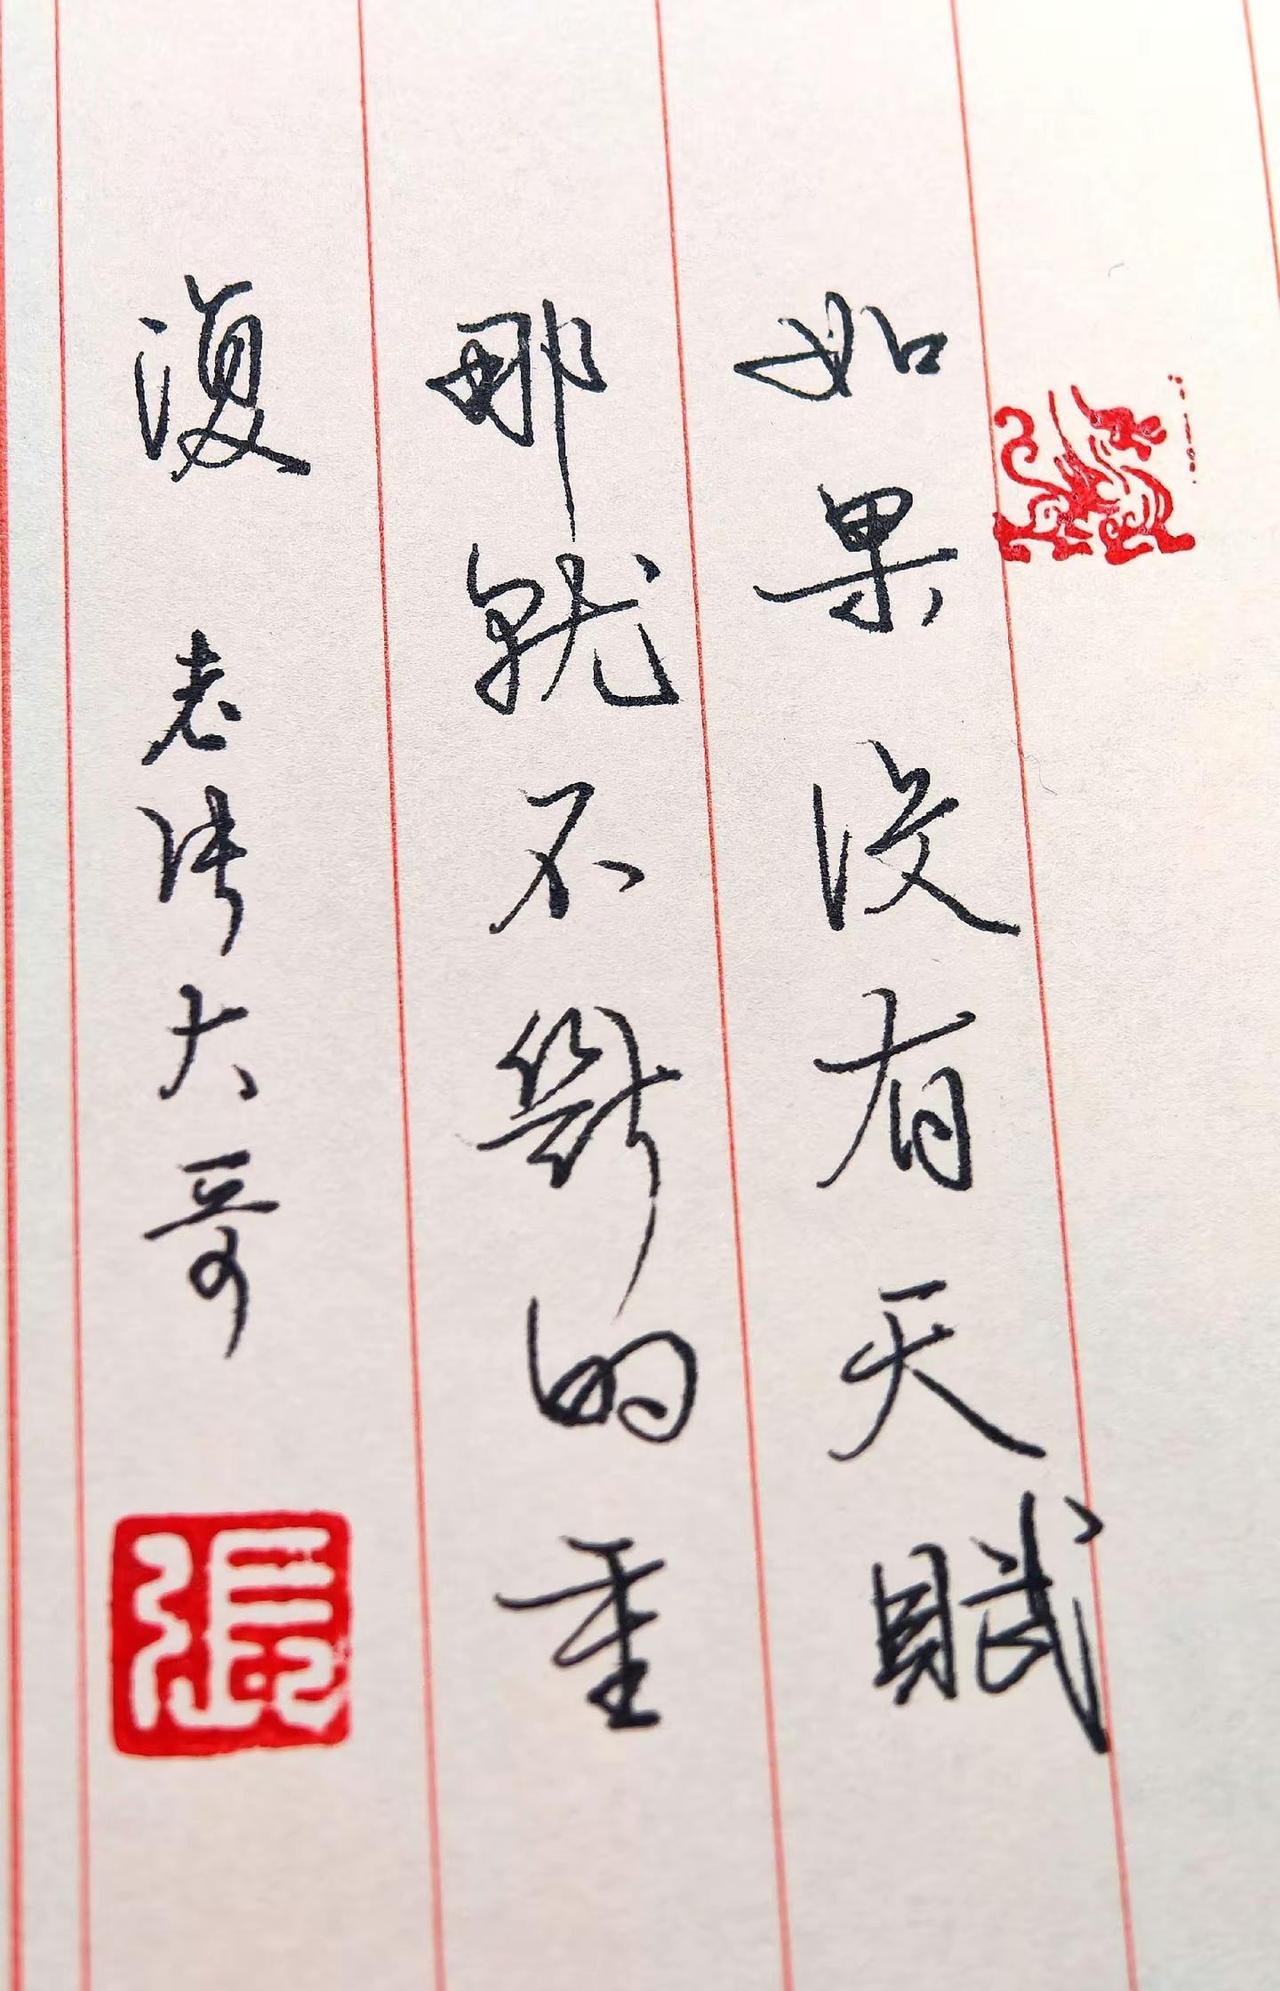 如果没有天赋
那就不斷的重
復 老张大哥
張